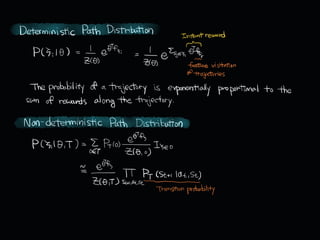 Deterministic Path Distribution
Instant reward
P(ζ_i|θ) = 1/Z(θ) e^{θ^T f_{ζ_i}} = 1/Z(θ) e^{Σ_{s_j∈ζ_i} θ^T f_{s_j}}
feature visitation
of trajectories
The probability of a trajectory is exponentially proportional to the
sum of rewards along the trajectory.
Non-deterministic Path Distribution
P(ζ_i|θ,T) = Σ_{o∈T} P_T(o) e^{θ^T f_{ζ_i}}/Z(θ,o) I_{ζ∈o}
≈ e^{θ^T f_{ζ_i}}/Z(θ,T) ∏ P_T(S_{t+1}|a_t,S_t)
Transition probability